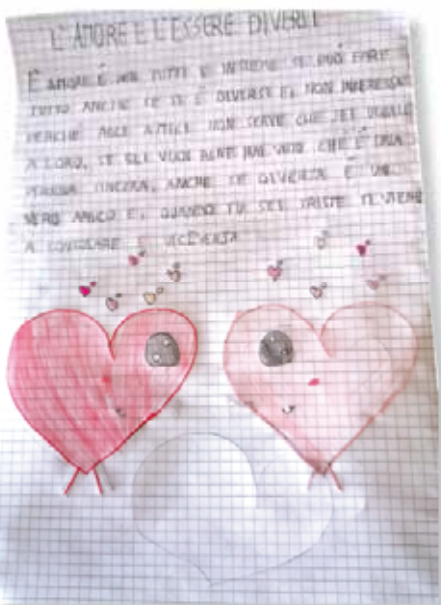 L'AMORE E L'ESSERE DIVERSI
L'AMORE È PER TUTTI E INSIEME SI PUÒ FARE
TUTTO ANCHE SE SI È DIVERSI E NON
PERCHÉ AGLI AMICI NON SERVE CHE SEI UGUALE
A LORO, SE GLI VUOI BENE CHE È UNA
PERSONA SINCERA, ANCHE SE DIVERSA È UN
VERO AMICO E, QUANDO TU SEI TRISTE TI VIENE
A CONSOLARE E VICEVERSA